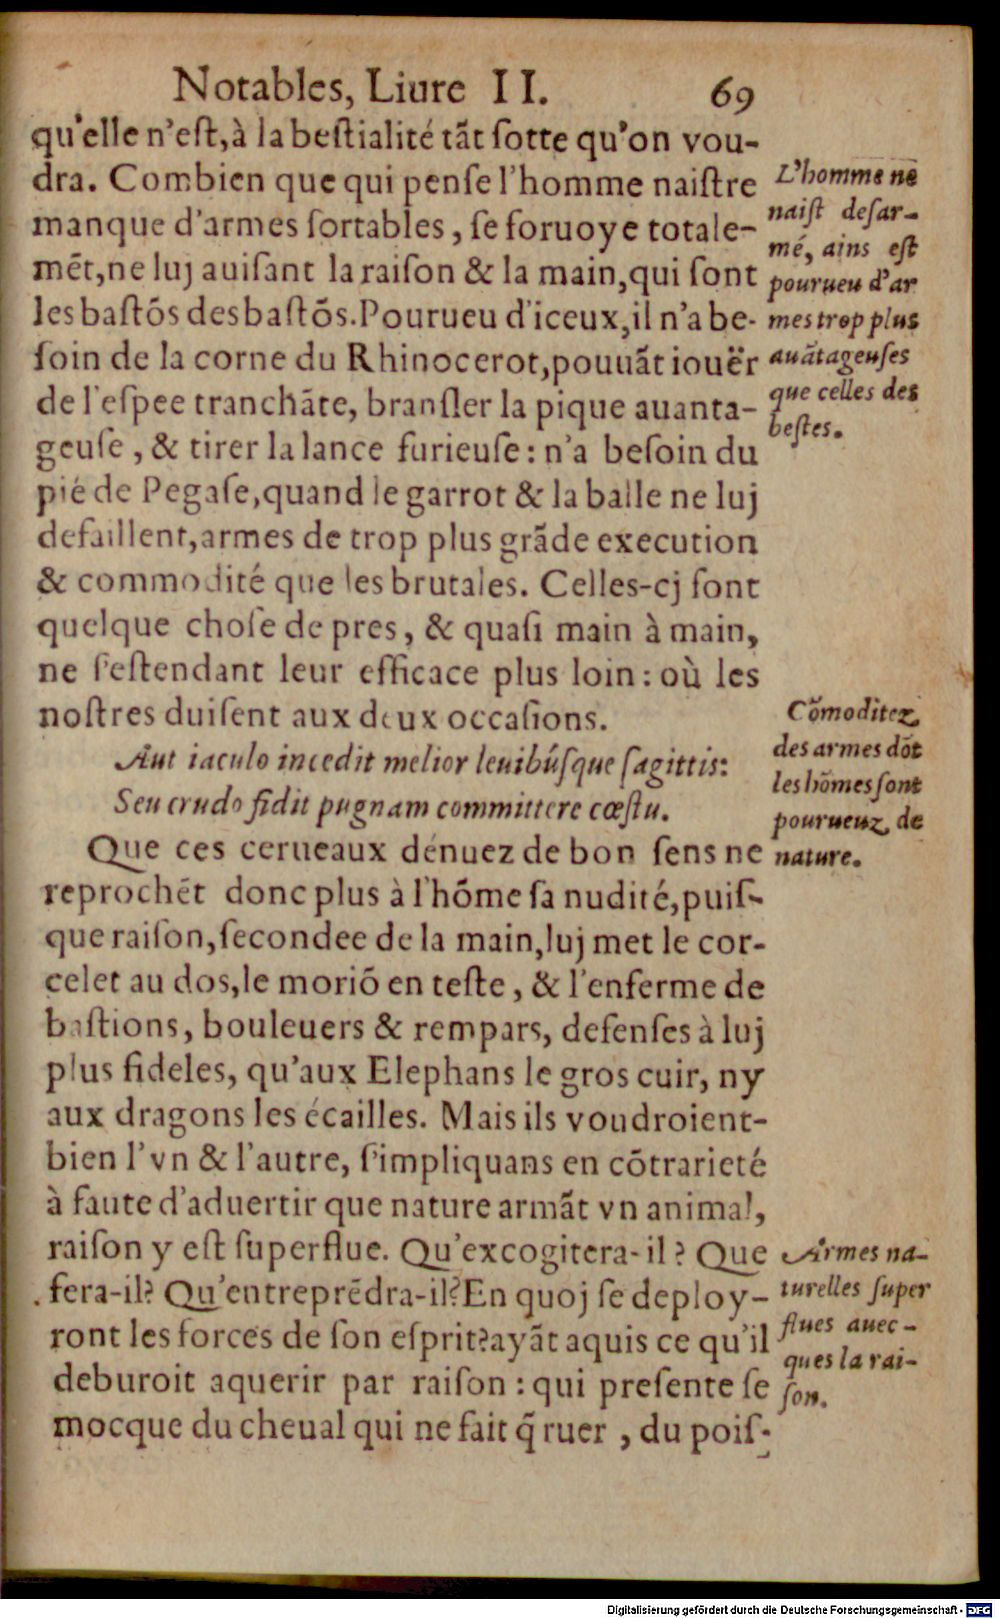 Notables, Liure II. 69
qu'elle n'eſt,à la beſtialité tãt ſotte qu'on vou-
dra. Combien que qui penſe l'homme naiſtre
manque d'armes ſortables, ſe foruoye totale-
mẽt,ne luj auiſant la raiſon & la main,qui ſont
les baſtõs des baſtõs.Pourueu d'iceux,il n'a be-
ſoin de la corne du Rhinocerot,pouuãt iouër
de l'eſpee tranchãte, branſler la pique auanta-
geuſe, & tirer la lance furieuſe: n'a beſoin du
pié de Pegaſe,quand le garrot & la balle ne luj
defaillent,armes de trop plus grãde execution
& commodité que les brutales. Celles-cj ſont
quelque choſe de pres, & quaſi main à main,
ne ſ'eſtendant leur efficace plus loin: où les
noſtres duiſent aux deux occaſions.
Aut iaculo incedit melior leuibúſque ſagittis:
Seu crudo fidit pugnam committere cœſtu.
Que ces cerueaux dénuez de bon ſens ne
reprochẽt donc plus à l'hõme ſa nudité,puiſ-
que raiſon,ſecondee de la main,luj met le cor-
celet au dos,le moriõ en teſte, & l'enferme de
baſtions, bouleuers & rempars, defenſes à luj
plus fideles, qu'aux Elephans le gros cuir, ny
aux dragons les écailles. Mais ils voudroient-
bien l'vn & l'autre, ſ'impliquans en cõtrarieté
à faute d'aduertir que nature armãt vn animal,
raiſon y eſt ſuperflue. Qu'excogitera-il? Que
fera-il? Qu'entreprẽdra-il?En quoj ſe deploy-
ront les forces de ſon eſprit?ayãt aquis ce qu'il
deburoit aquerir par raiſon: qui preſente ſe
mocque du cheual qui ne fait q̃ ruer, du poiſ-
L'homme ne
naiſt deſar-
mé, ains eſt
pourueu d'ar
mes trop plus
auãtageuſes
que celles des
beſtes.
Cõmoditez
des armes dõt
les hõmes ſont
pourueuz de
nature.
Armes na-
turelles ſuper
flues auec-
ques la rai-
ſon.
Digitalisierung gefördert durch die Deutsche Forschungsgemeinschaft - DFG